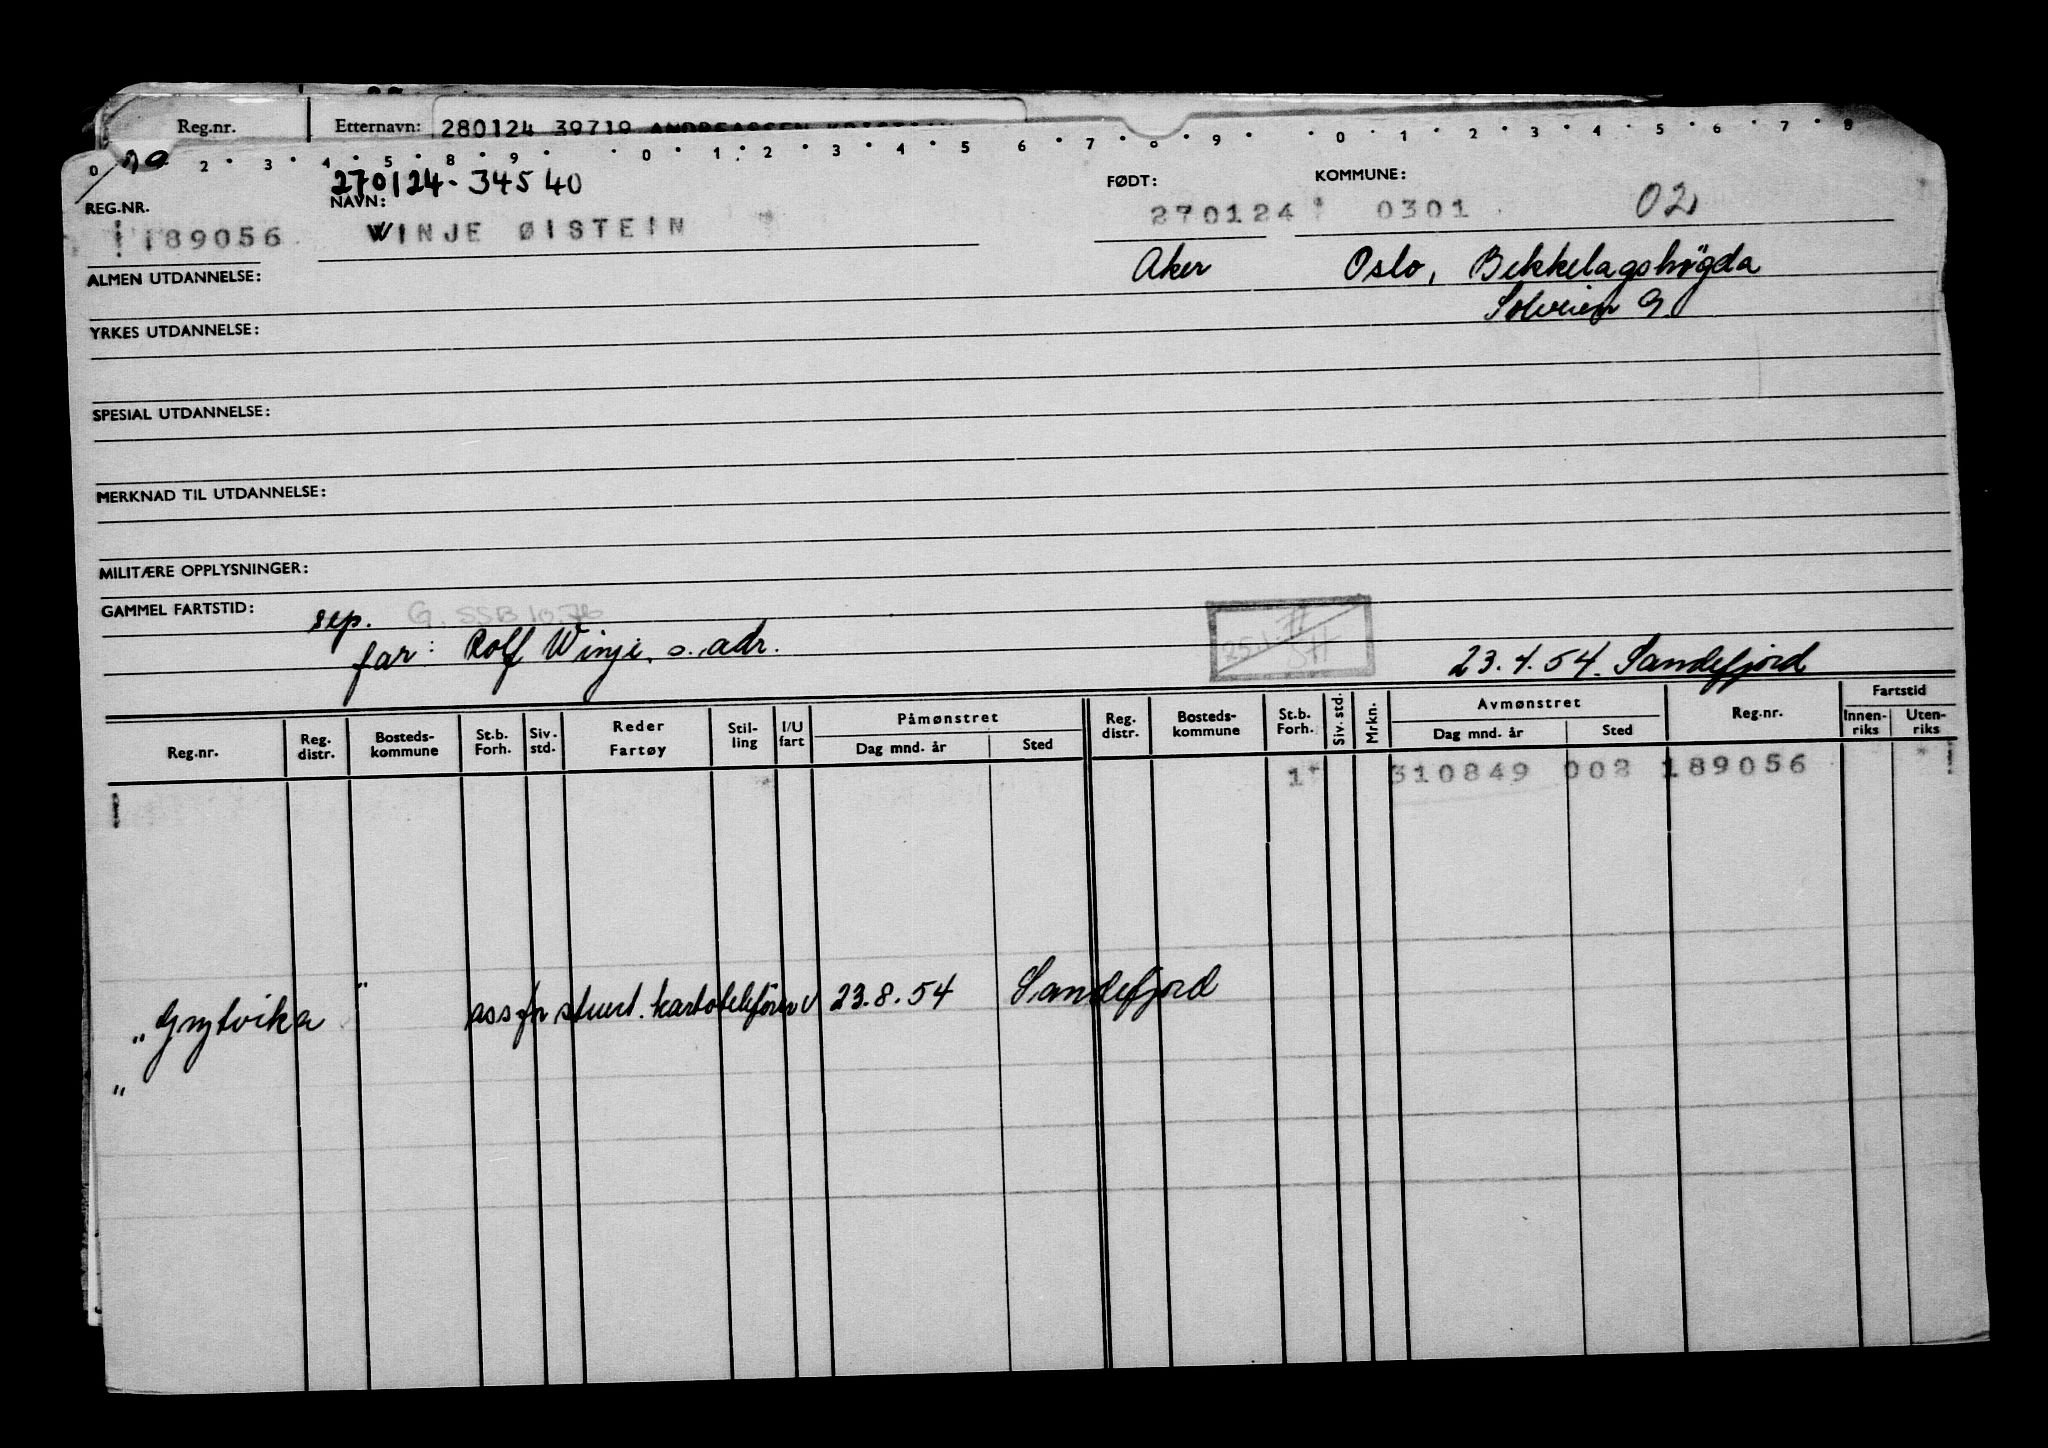 Reg.nr. Etternavn: 280124 39719 ANDREASSEN
0 2 3 4 5 8 9 0 1 2 3 4 5 6 7 8 9 0 1 2 3 4 5 6 7 8
270124-34540
REG.NR. NAVN: FØDT: KOMMUNE:
189056 WINJE ØISTEIN 270124 0301 02
ALMEN UTDANNELSE: Aker Oslo, Bekkelagshøgda
Solveien 9
YRKES UTDANNELSE:
SPESIAL UTDANNELSE:
MERKNAD TIL UTDANNELSE:
MILITÆRE OPPLYSNINGER:
GAMMEL FARTSTID: sep. G. SSB 10.76
far: Rolf Winje, s. adr. 23.4.54. Sandefjord
Reg.nr. Reg. distr. Bosteds-kommune St.b. Forh. Siv. std. Reder Fartøy Stil-ling I/U fart Påmønstret Dag mnd. år Sted Reg. distr. Bosteds-kommune St.b. Forh. Siv. std. Mrkn. Avmønstret Dag mnd. år Sted Reg.nr. Fartstid Innen-riks Uten-riks
1 310849 002 189056
" Grytvika " ass fr stuert. 23.8.54 Sandefjord
"